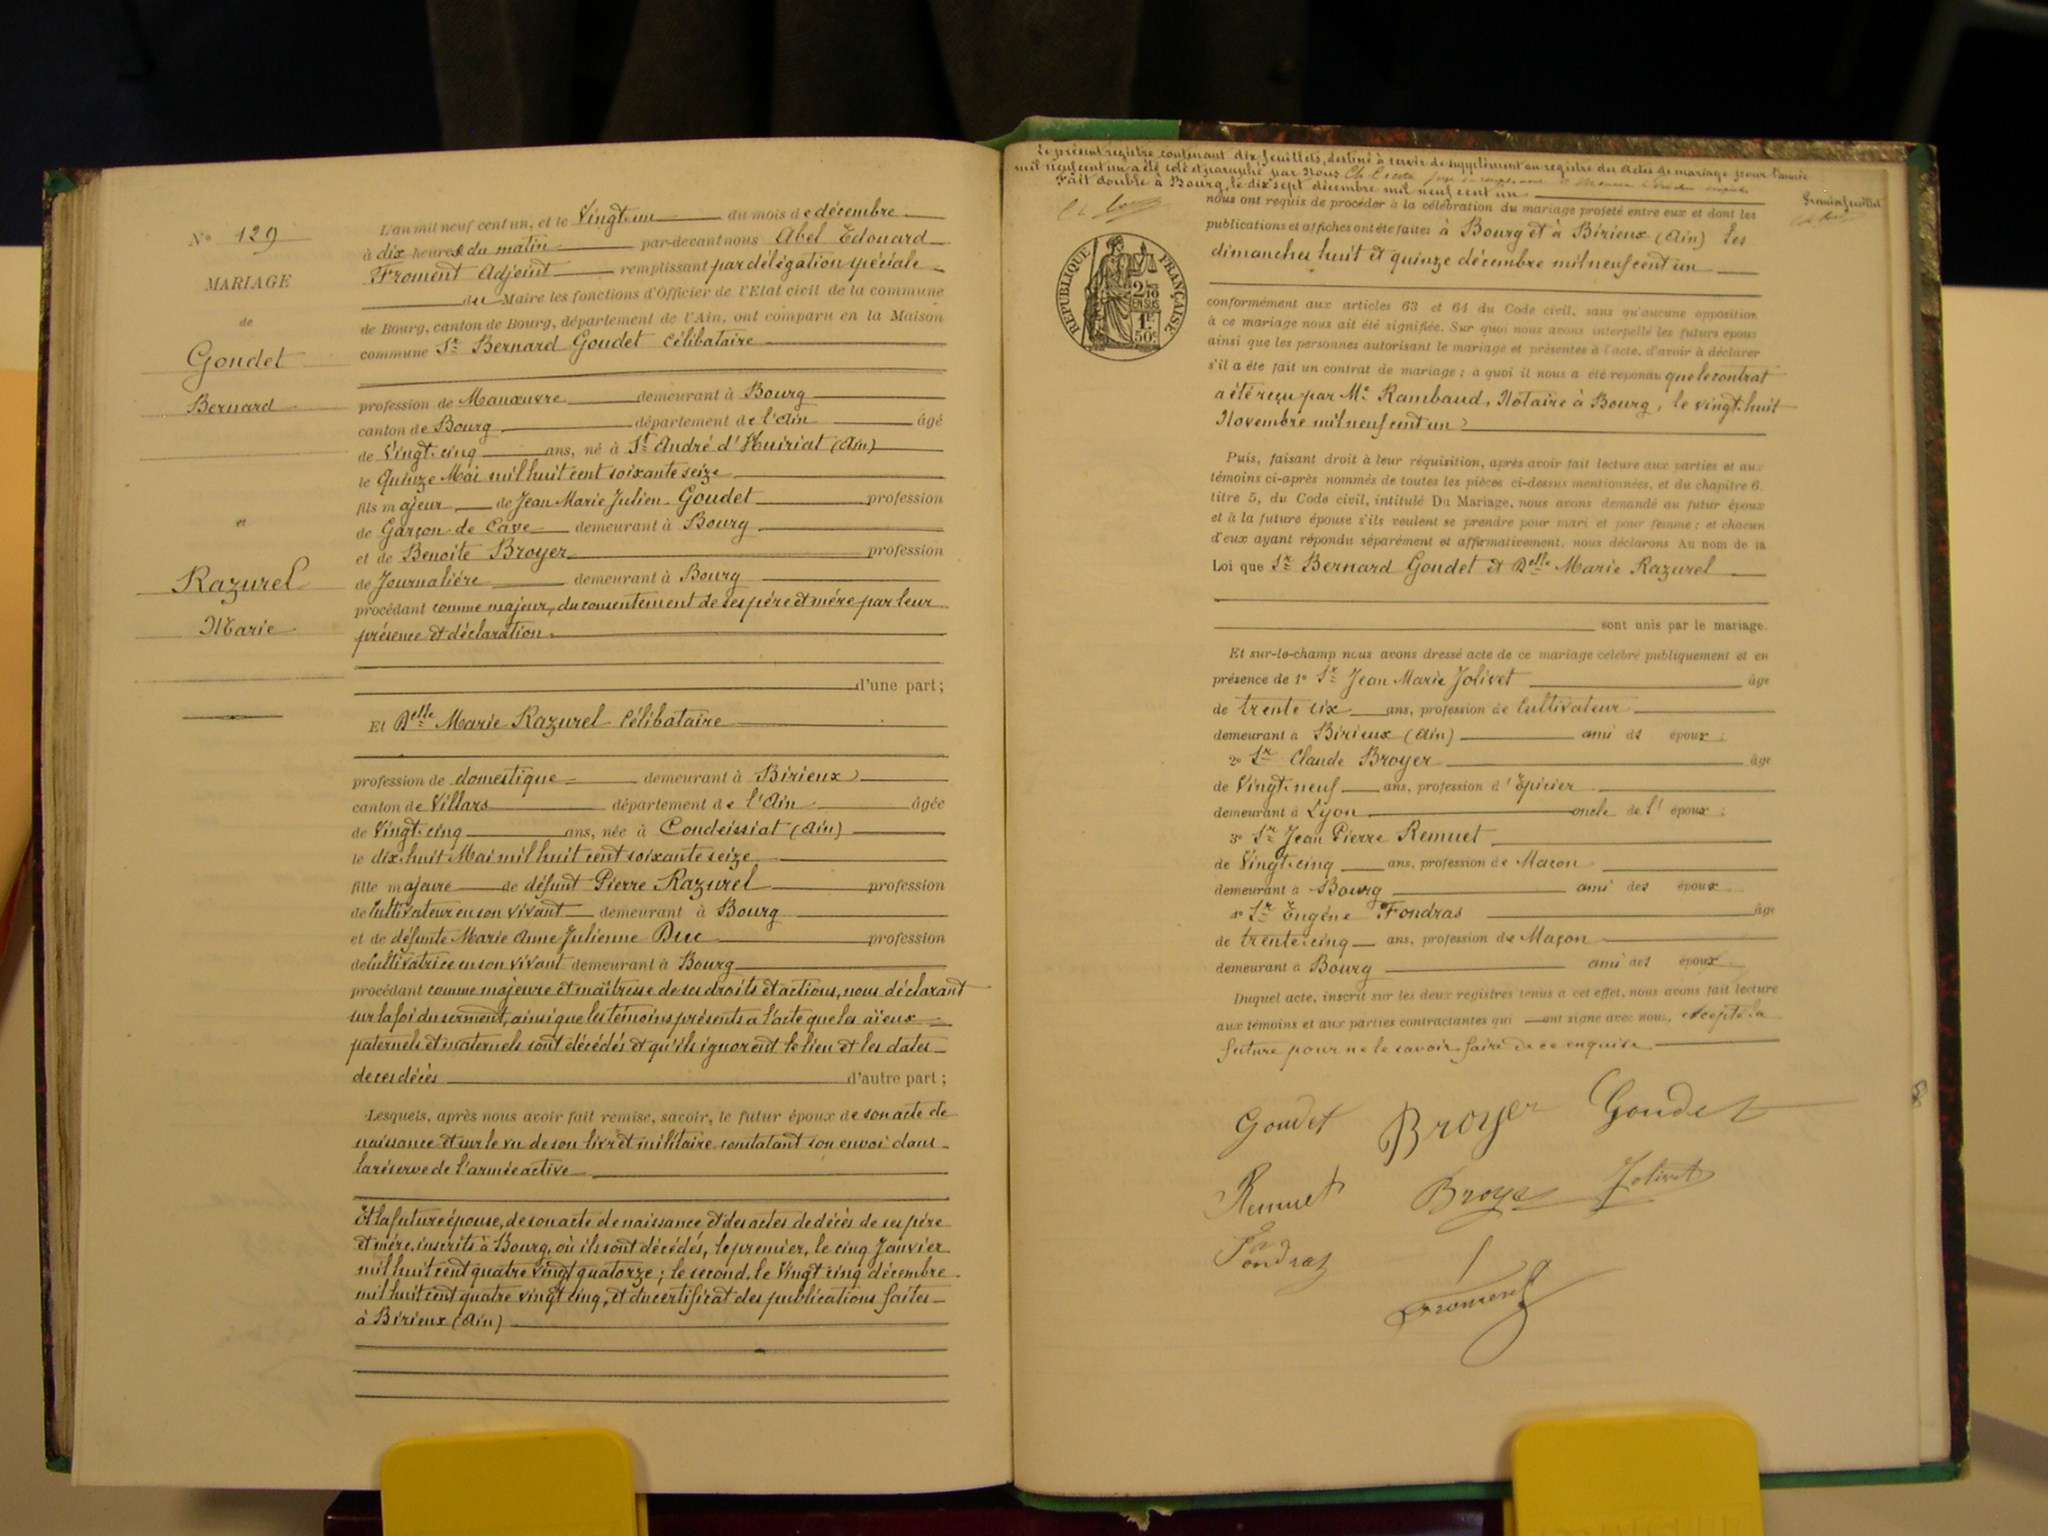 N° 129
MARIAGE
de
Goudet
Bernard
et
Razurel
Marie
L'an mil neuf cent un, et le Vingt-un du mois de décembre
à dix heures du matin par-devant nous Abel Edouard
Froment Adjoint remplissant par délégation spéciale
du Maire les fonctions d'Officier de l'Etat civil de la commune
de Bourg, canton de Bourg, département de l'Ain, ont comparu en la Maison
commune Sr Bernard Goudet Célibataire
profession de Manœuvre demeurant à Bourg
canton de Bourg département de l'Ain âgé
de Vingt-cinq ans, né à St André d'Huiriat (Ain)
le Quinze Mai mil huit cent soixante seize
fils majeur de Jean Marie Julien Goudet profession
de Garçon de Cave demeurant à Bourg
et de Benoite Broyer profession
de Journalière demeurant à Bourg
procédant comme majeur, du consentement de ses père et mère par leur
présence et déclaration
d'une part;
Et Delle Marie Razurel Célibataire
profession de domestique demeurant à Birieux
canton de Villars département de l'Ain âgée
de Vingt-cinq ans, née à Condeissiat (Ain)
le dix-huit Mai mil huit cent soixante seize
fille majeure de défunt Pierre Razurel profession
de Cultivateur en son vivant demeurant à Bourg
et de défunte Marie Anne Julienne Duc profession
de Cultivatrice en son vivant demeurant à Bourg
procédant comme majeure et maîtresse de ses droits et actions, nous déclarant
sur la foi du serment, ainsi que les témoins présents à l'acte que les aïeux
paternels et maternels sont décédés et qu'ils ignorent le lieu et les dates
de ces décès d'autre part;
Lesquels, après nous avoir fait remise, savoir, le futur époux de son acte de
naissance et sur le vu de son livret militaire constatant son envoi dans
la réserve de l'armée active
Et la future épouse, de son acte de naissance et des actes de décès de ses père
et mère, inscrits à Bourg, où ils sont décédés, le premier, le cinq Janvier
mil huit cent quatre vingt quatorze; le second, le Vingt cinq décembre
mil huit cent quatre vingt cinq, et du certificat des publications faites
à Birieux (Ain)
Le présent registre contenant dix feuillets, destiné à servir de supplément au registre des Actes de mariage pour l'année
mil neuf cent un a été coté et paraphé par Nous
Fait double à Bourg, le dix sept décembre mil neuf cent un
Premier feuillet
REPUBLIQUE FRANÇAISE
2/10 EN SUS
1F 50c
nous ont requis de procéder à la célébration du mariage projeté entre eux et dont les
publications et affiches ont été faites à Bourg et à Birieux (Ain) les
dimanches huit et quinze décembre mil neuf cent un
conformément aux articles 63 et 64 du Code civil, sans qu'aucune opposition
à ce mariage nous ait été signifiée. Sur quoi nous avons interpellé les futurs époux
ainsi que les personnes autorisant le mariage et présentes à l'acte, d'avoir à déclarer
s'il a été fait un contrat de mariage; à quoi il nous a été répondu que le contrat
a été reçu par Me Rambaud, Notaire à Bourg, le vingt-huit
Novembre mil neuf cent un
Puis, faisant droit à leur réquisition, après avoir fait lecture aux parties et aux
témoins ci-après nommés de toutes les pièces ci-dessus mentionnées, et du chapitre 6,
titre 5, du Code civil, intitulé Du Mariage, nous avons demandé au futur époux
et à la future épouse s'ils veulent se prendre pour mari et pour femme; et chacun
d'eux ayant répondu séparément et affirmativement, nous déclarons Au nom de la
Loi que Sr Bernard Goudet et Delle Marie Razurel
sont unis par le mariage.
Et sur-le-champ nous avons dressé acte de ce mariage célébré publiquement et en
présence de 1° Sr Jean Marie Jolivet âgé
de trente six ans, profession de Cultivateur
demeurant à Birieux (Ain) ami des époux;
2° Sr Claude Broyer âgé
de Vingt-neuf ans, profession d'Epicier
demeurant à Lyon oncle de l'époux;
3° Sr Jean Pierre Remuet
de Vingt-cinq ans, profession de Maçon
demeurant à Bourg ami des époux
4° Sr Eugène Fondras âgé
de trente-cinq ans, profession de Maçon
demeurant à Bourg ami des époux
Duquel acte, inscrit sur les deux registres tenus à cet effet, nous avons fait lecture
aux témoins et aux parties contractantes qui ont signé avec nous, excepté la
future pour ne le savoir faire de ce enquise
Goudet Broyer Goudet
Remuet Broye Jolivet
Fondras
Froment